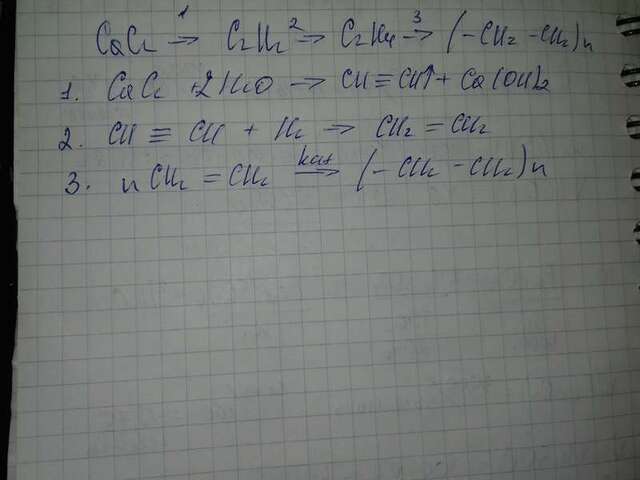 CaC₂ →¹ C₂H₂ →² C₂H₄ →³ (-CH₂-CH₂)n
1. CaC₂ + 2H₂O → CH≡CH↑ + Ca(OH)₂
2. CH≡CH + H₂ → CH₂=CH₂
3. nCH₂=CH₂ →кат (-CH₂-CH₂)n